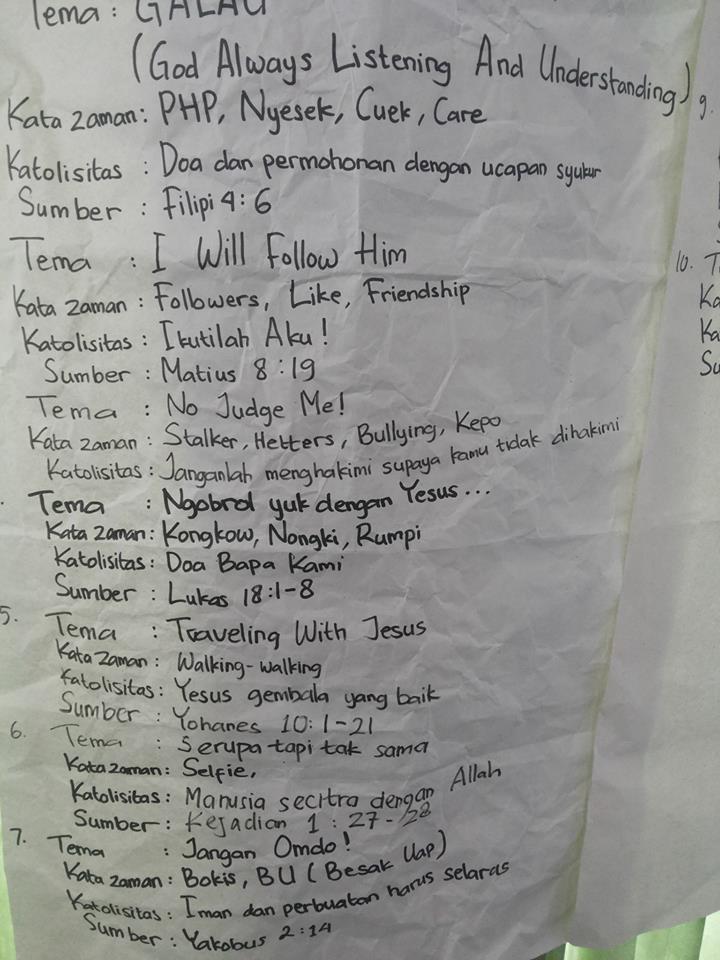 Tema : GALAU
(God Always Listening And Understanding)
Kata zaman : PHP, Nyesek, Cuek, Care
Katolisitas : Doa dan permohonan dengan ucapan syukur
Sumber : Filipi 4 : 6
Tema : I Will Follow Him
Kata zaman : Followers, Like, Friendship
Katolisitas : Ikutilah Aku !
Sumber : Matius 8 : 19
Tema : No Judge Me!
Kata zaman : Stalker, Hetters, Bullying, Kepo
Katolisitas : Janganlah menghakimi supaya kamu tidak dihakimi
Tema : Ngobrol yuk dengan Yesus...
Kata zaman : Kongkow, Nongki, Rumpi
Katolisitas : Doa Bapa Kami
Sumber : Lukas 18 : 1-8
5. Tema : Traveling With Jesus
Kata zaman : Walking-walking
Katolisitas : Yesus gembala yang baik
Sumber : Yohanes 10 : 1-21
6. Tema : Serupa tapi tak sama
Kata zaman : Selfie,
Katolisitas : Manusia secitra dengan Allah
Sumber : Kejadian 1 : 27-28
7. Tema : Jangan Omdo!
Kata zaman : Bokis, BU (Besak Uap)
Katolisitas : Iman dan perbuatan harus selaras
Sumber : Yakobus 2 : 14
9.
10.